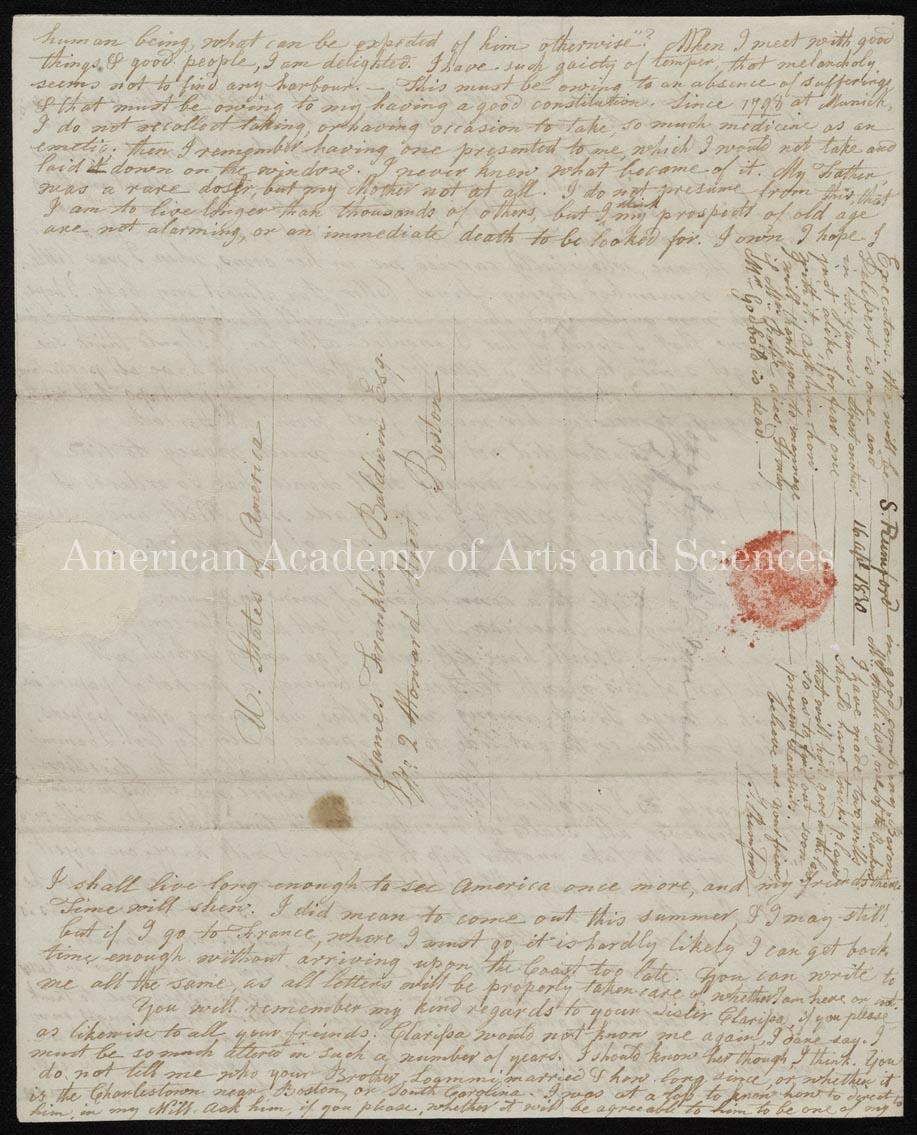 human being, what can be expected of him otherwise"? When I meet with good
things, & good people, I am delighted. I have such gaiety of temper, that melancholy
seems not to find any harbour. — This must be owing to an absence of sufferings
& that must be owing to my having a good constitution. Since 1798 at Munich,
I do not recollect taking, or having occasion to take, so much medicine as an
emetic. Then I remember having one presented to me, which I would not take and
laid it down on the window. I never knew what became of it. My Father
was a rare doser, but my Mother not at all. I do not presume from this, that
I am to live longer than thousands of others, but I think my prospects of old age
are not alarming, or an immediate death to be looked for. I own I hope I
I shall live long enough to see America once more, and my friends there
Time will shew. I did mean to come out this summer & I may still,
but if I go to France, where I must go, it is hardly likely I can get back
time enough without arriving upon the Coast too late. You can write to
me all the same, as all letters will be properly taken care of whether I am here or not.
You will remember my kind regards to your Sister Clarissa, if you please
as likewise to all your friends. Clarissa would not know me again, I dare say. I
must be so much altered in such a number of years. I should know her though, I think. You
do not tell me who your Brother Loammi married & how long since, or whether it
is the Charlestown near Boston, or South Carolina. I was at a stop to know how to direct to
him, in my Will. Ask him, if you please, whether it will be agreeable to him to be one of my
Executors. He will be in good company. Baron
Delessert is one and
in St. James's Street
just alike, for fear one
I have made two wills
should have tricks played
that will hold good
so as to find out soon
prevent lawsuits.
will thank you to manage
if Mr
dies,
Mr. Godbold is dead. —
believe me your friend
S. Rumford
S. Rumford
16 apl. 1830
James Franklin Baldwin Esq.
No. 2 Howard Street
Boston
U. States of America
American Academy of Arts and Sciences